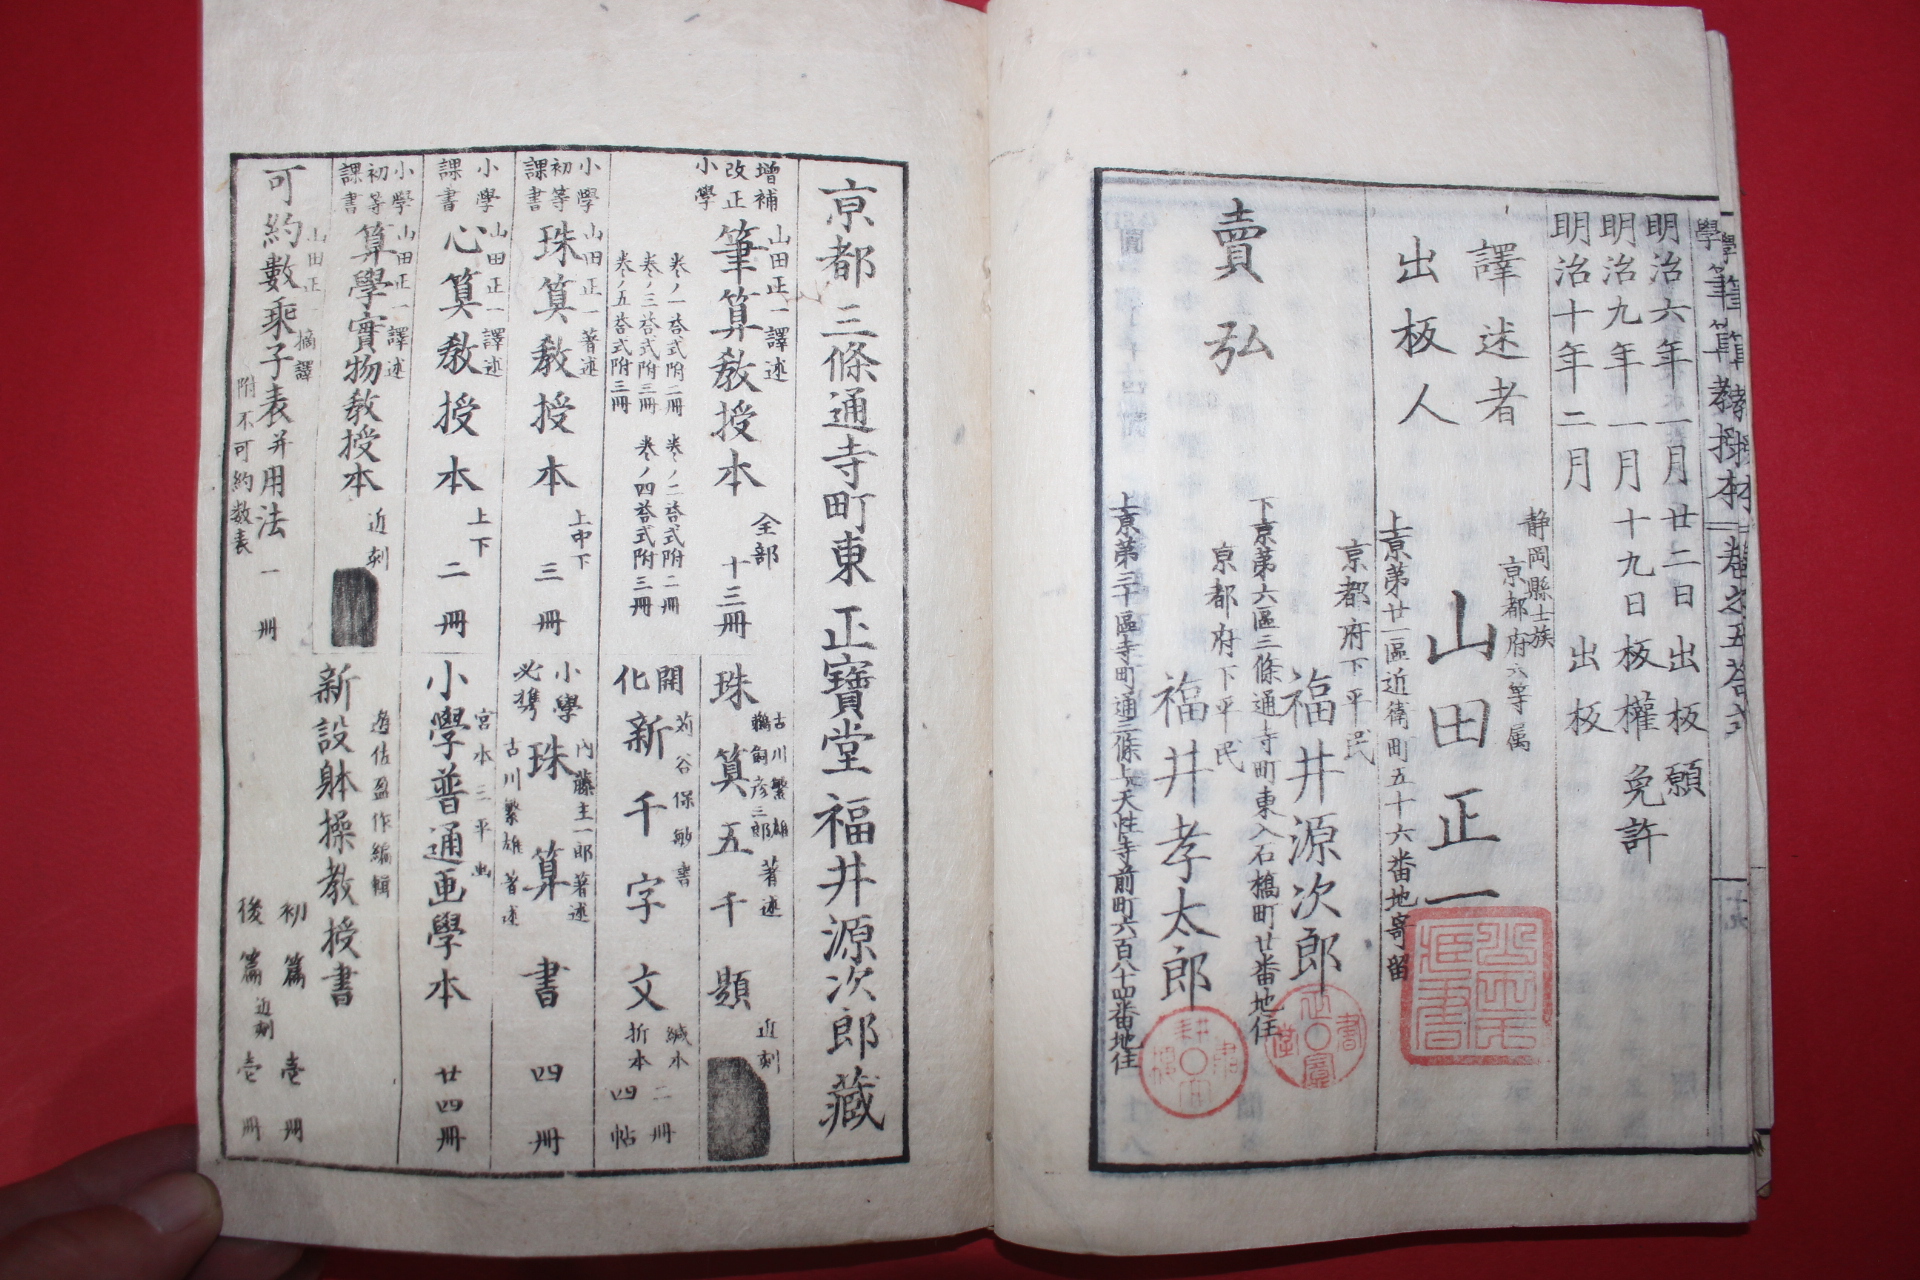 學筆算教授本 卷之五答式
明治六年一月廿二日出板願
明治九年一月十九日板權免許
明治十年二月 出板
譯述者
静岡縣士族
京都府六等属
山田正一
上京第廿一區近衛町五十六番地寄留
出板人
京都府下平民
福井源次郎
下京第六區三條通寺町東入石橋町廿番地住
賣弘
京都府下平民
福井孝太郎
上京第三十區寺町通三條上天性寺前町六百八十四番地住
京都三條通寺町東 正寶堂 福井源次郎藏
增補
改正
小學
筆算教授本
山田正一譯述
全部
十三冊
卷ノ一荅式附二冊 卷ノ二荅式附二冊
卷ノ三荅式附三冊 卷ノ四荅式附三冊
卷ノ五荅式附三冊
小學
初等
課書
珠算教授本
山田正一著述
上中下
三冊
小學
課書
心算教授本
山田正一譯述
上下
二冊
小學
初等
課書
算學實物教授本
山田正一譯述
近刻
可約數乘子表并用法 一冊
山田正一摘譯
附不可約數表
珠算五千題
古川繁雄
鵜飼彦三郎
著述
近刻
開化新千字文
苅谷保敏書
綴本 二冊
折本 四帖
小學
必携
珠算書
内藤主一郎著述
古川繁雄著述
四冊
小學普通画學本
宮本三平画
廿四冊
新設躰操教授書
遊佐盈作編輯
初篇 壱冊
後篇 近刻 壱冊